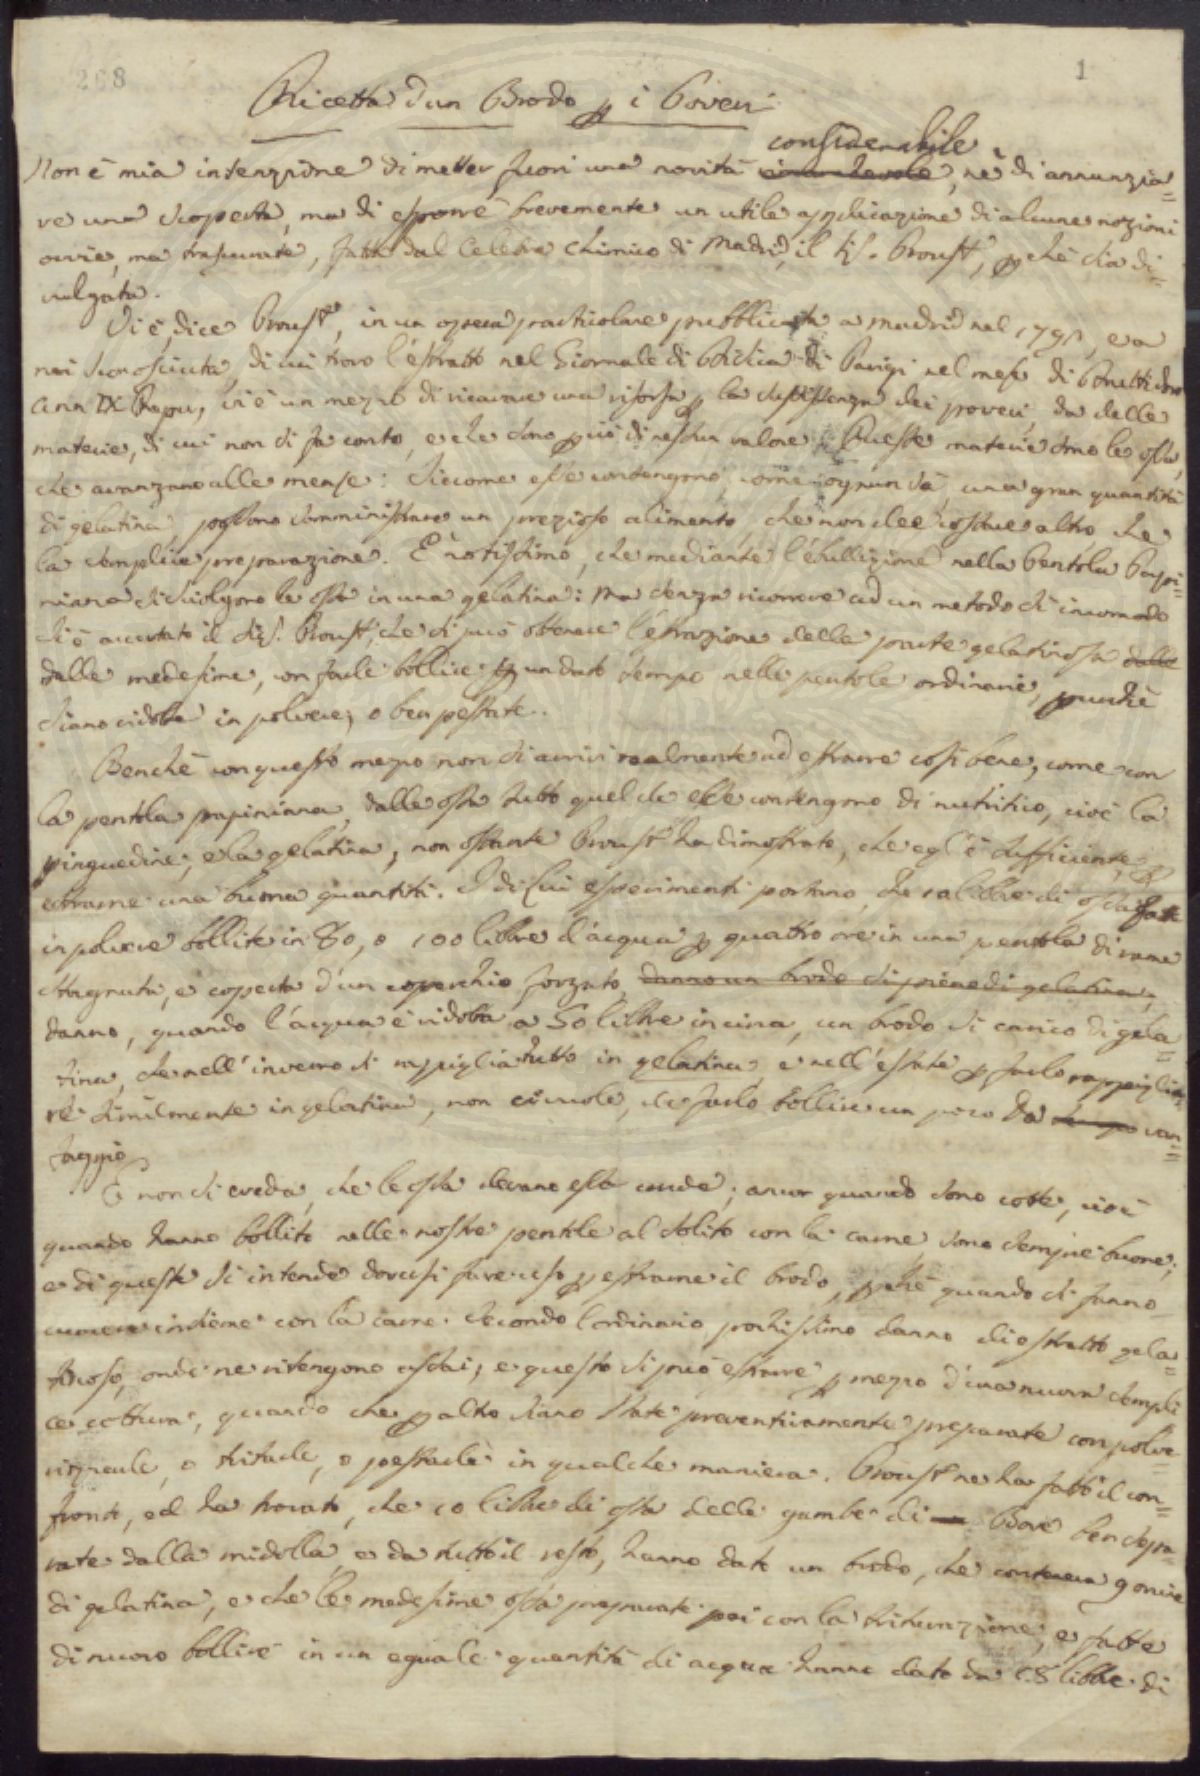 268
1
Ricetta d'un Brodo p i Poveri
considerabile
Non è mia intenzione di metter fuori una novità, nè di annunzia=
re una scoperta, ma di esporre brevemente un utile applicazione di alcune nozioni
ovvie, ma trascurate, fatta dal Celebre Chimico di Madrid, il Sig. Proust, pchè sia di=
vulgata.
Vi è, dice Proust, in un opera particolare pubblicata a Madrid nel 1791, e a
noi sconosciuta, di cui trovo l'estratto nel Giornale di Fisica di Parigi nel mese di
Ann IX Repu, vi è un mezzo di ricavare una risorsa p la sussistenza dei poveri da delle
materie, di cui non si fa conto, e che sono p più di nessun valore. Queste materie sono le ossa,
che avanzano alle mense: siccome esse contengono, come ognun sà, una gran quantità
di gelatina possono somministrare un prezioso alimento, che non dee costare altro, che
la semplice preparazione. È notissimo, che mediante l'ebullizione nella Pentola Papi=
niana si sciolgono le ossa in una gelatina: Ma senza ricorrere ad un metodo sì incomodo
si è accertato il Sig. Proust, che si può ottenere l'estrazione della parte gelatinosa dalle
dalle medesime, con farle bollire p un dato tempo nelle pentole ordinarie, purchè
siano ridotte in polvere, o ben pestate.
Benchè con questo mezzo non si arrivi realmente ad estrarre così bene, come con
la pentola papiniana, dalle ossa tutto quel che esse contengono di nutritivo, cioè la
pinguedine, e la gelatina, non ostante Proust ha dimostrato, che egl'è sufficiente p
estrarne una buona quantità. I di lui esperimenti portano, che 10 libbre di ossa fatte
in polvere bollite in 80, o 100 libbre d'acqua p quattro ore in una pentola di rame
stagnata, e coperta d'un coperchio forzato, danno un brodo sì pieno di gelatina,
danno, quando l'acqua è ridotta a 50 libbre in circa, un brodo sì carico di gela=
tina, che nell'inverno si rappiglia tutto in gelatina, e nell'estate p farlo rappiglia=
re similmente in gelatina, non ci vuole, che farlo bollire un poco da van=
taggio.
E non si creda, che le ossa devano esser crude; ancor quando sono cotte, cioè
quando hanno bollito nelle nostre pentole al solito con la carne, sono sempre buone;
e di queste s'intende doversi fare uso p estrarne il brodo, pchè quando si fanno
cuocere insieme con la carne secondo l'ordinario, pochissimo danno di estratto gela=
tinoso, onde ne ritengono assai, e questo si può estrarre p mezzo d'una nuova sempli
ce cottura, quando che p altro siano state preventivamente preparate con polve=
rizzarle, o tritarle, o pestarle in qualche maniera. Proust ne ha fatto il con=
fronto, ed ha trovato, che 10 libbre di ossa delle gambe di Bove ben sepa=
rate dalla midolla, e da tutto il resto, hanno dato un brodo, che conteneva 9 oncie
di gelatina, e che le medesime ossa preparate poi con la triturazione, e fatte
di nuovo bollire in un eguale quantità di acqua hanno dato da 1.8 libbre di